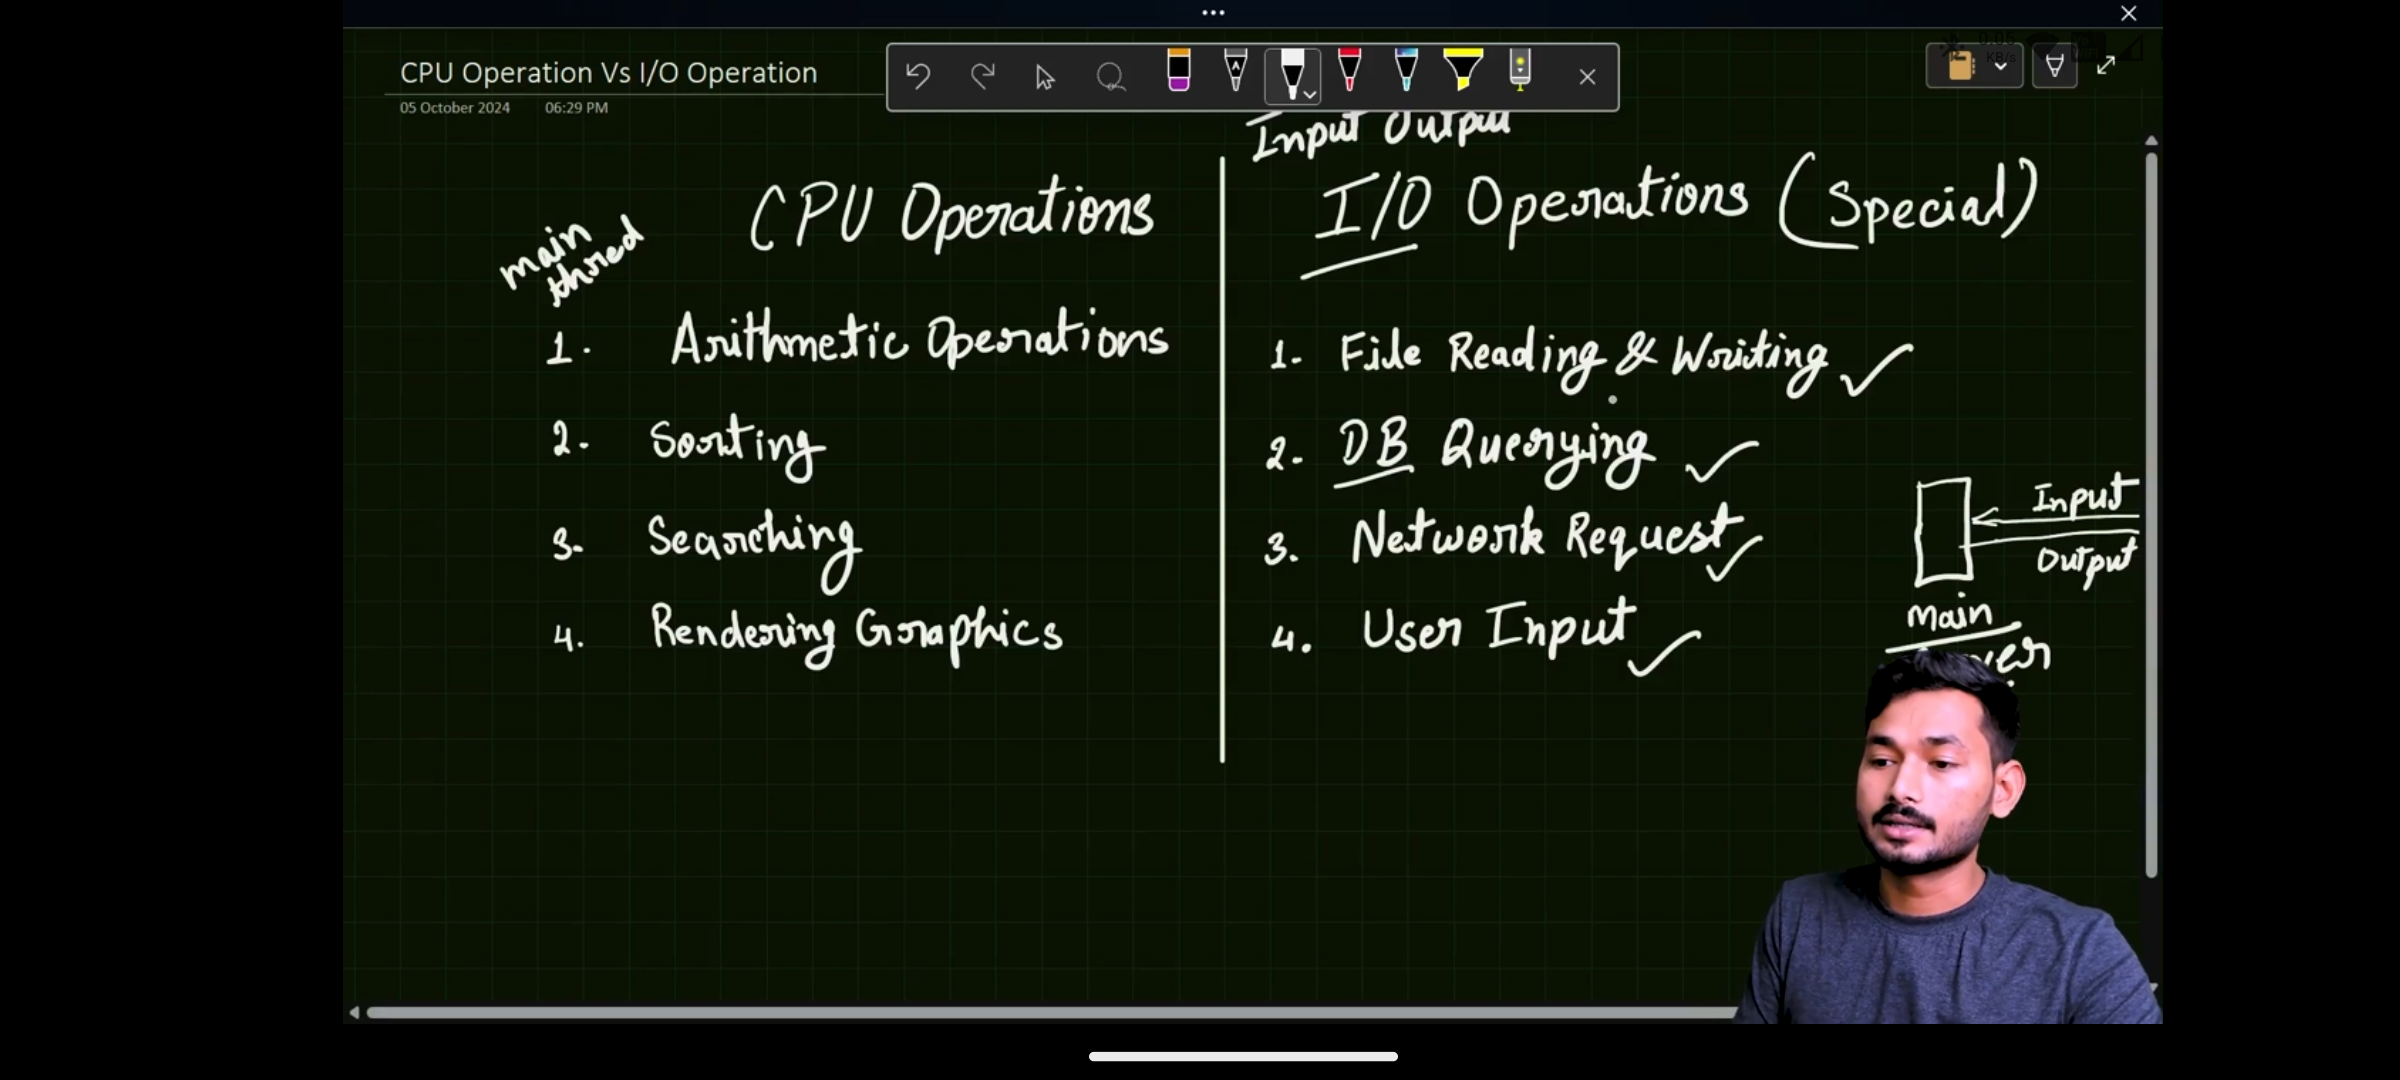 CPU Operation Vs I/O Operation
05 October 2024 06:29 PM
Input Output
CPU Operations
I/O Operations (Special)
main
thred
1. Arithmetic Operations
2. Sorting
3. Searching
4. Rendering Graphics
1. File Reading & Writing
2. DB Querying
3. Network Request
4. User Input
Input
Output
Main